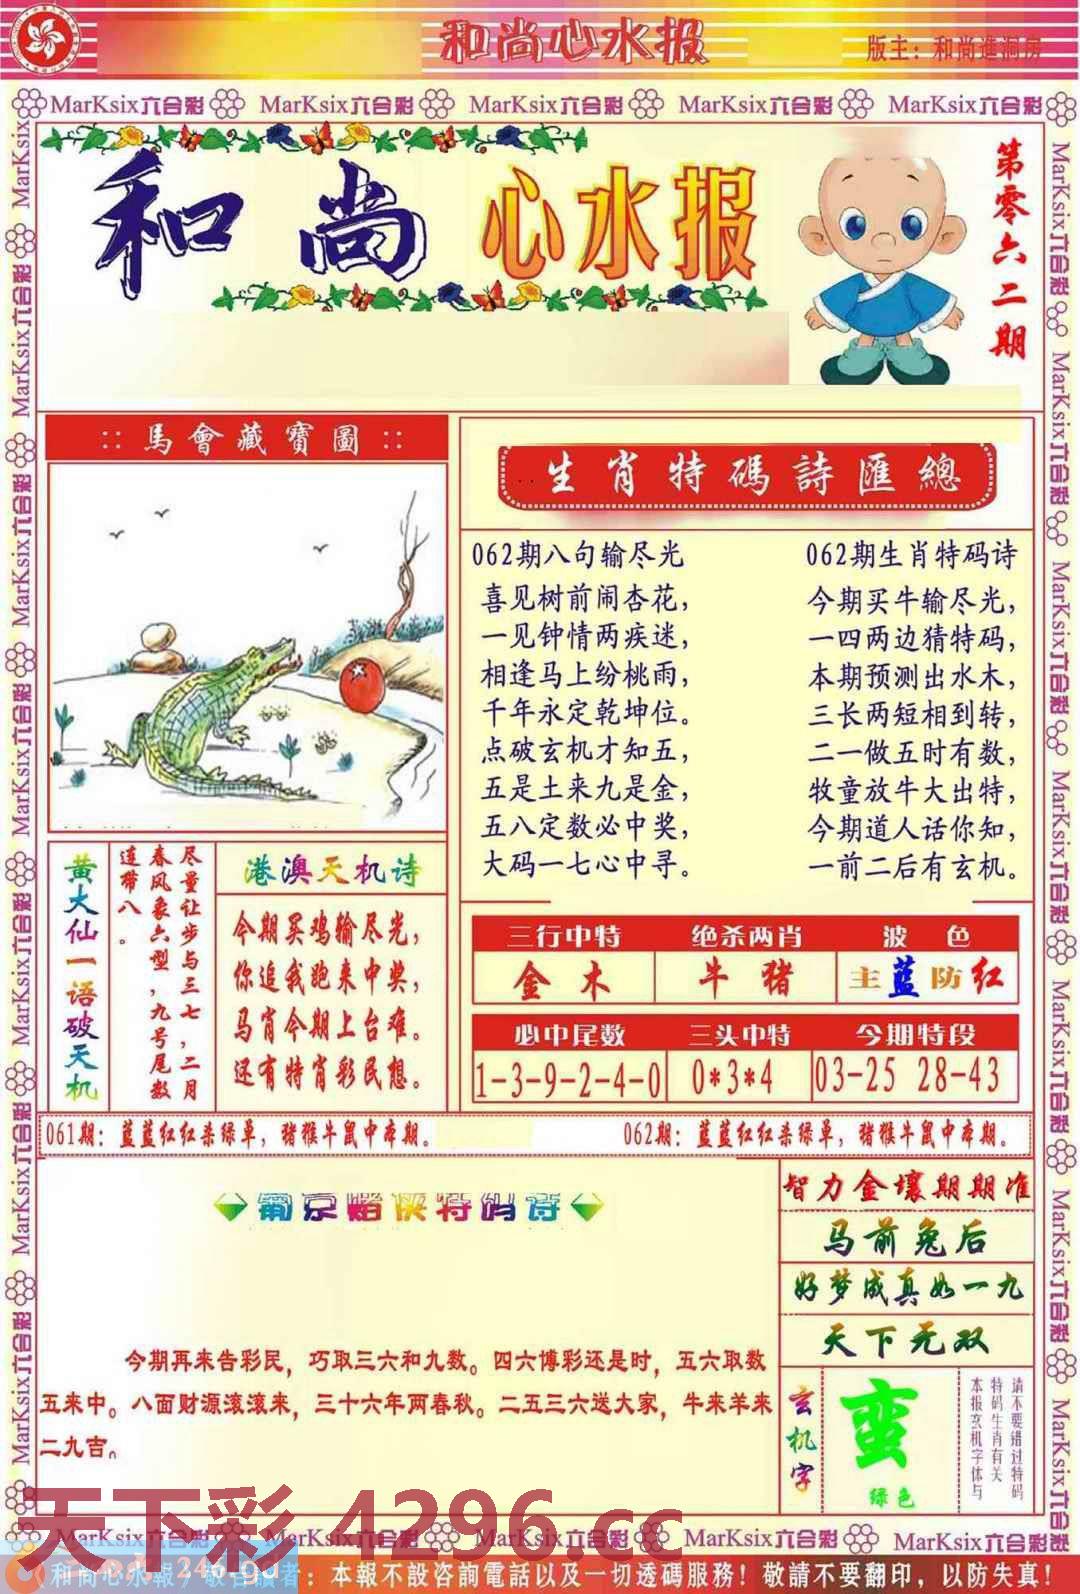 和尚心水报
版主：和尚進洞房
MarKsix六合彩 MarKsix六合彩 MarKsix六合彩 MarKsix六合彩 MarKsix六合彩
和尚心水报
第零六二期
:: 馬會藏寶圖 ::
生肖特碼詩匯總
062期八句输尽光
喜见树前闹杏花，
一见钟情两疾迷，
相逢马上纷桃雨，
千年永定乾坤位。
点破玄机才知五，
五是土来九是金，
五八定数必中奖，
大码一七心中寻。
062期生肖特码诗
今期买牛输尽光，
一四两边猜特码，
本期预测出水木，
三长两短相到转，
二一做五时有数，
牧童放牛大出特，
今期道人话你知，
一前二后有玄机。
黄大仙一语破天机
尽量让步与三七，二月
春风象六型，九号尾数
连带八。
港澳天机诗
今期买鸡输尽光，
你追我跑来中奖，
马肖今期上台难。
还有特肖彩民想。
三行中特 绝杀两肖 波色
金木 牛猪 主蓝防红
必中尾数 三头中特 今期特段
1-3-9-2-4-0 0*3*4 03-25 28-43
061期：蓝蓝红红杀绿单，猪猴牛鼠中本期。
062期：蓝蓝红红杀绿单，猪猴牛鼠中本期。
葡京赌侠特码诗
今期再来告彩民，巧取三六和九数。四六博彩还是时，五六取数
五来中。八面财源滚滚来，三十六年两春秋。二五三六送大家，牛来羊来
二九吉。
智力金壤期期准
马前兔后
好梦成真如一九
天下无双
玄机字
蛮
绿色
请不要错过特码
特码生肖有关
本报玄机字体与
天下彩 4296.cc
MarKsix六合彩 MarKsix六合彩 MarKsix六合彩 MarKsix六合彩 MarKsix六合彩
246.gd
和尚心水報敬告讀者：本報不設咨詢電話以及一切透碼服務！敬請不要翻印，以防失真！